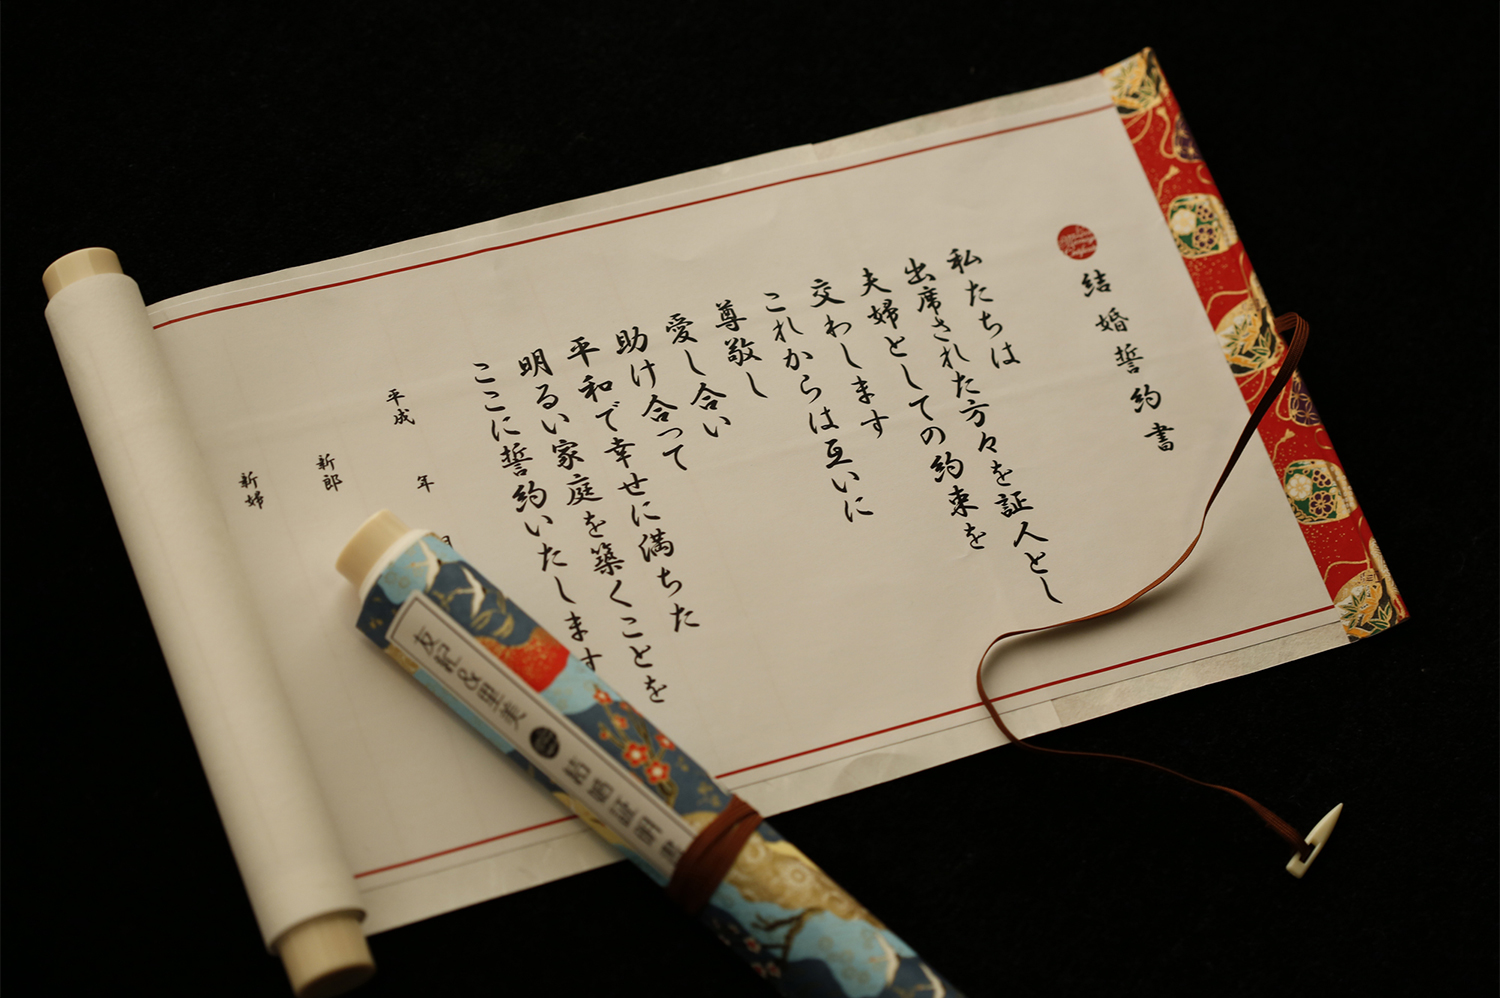 結婚誓約書
私たちは
出席された方々を証人とし
夫婦としての約束を
交わします
これからは互いに
尊敬し
愛し合い
助け合って
平和で幸せに満ちた
明るい家庭を築くことを
ここに誓約いたします
平成 年
新郎
新婦
友紀&里美
結婚証明書